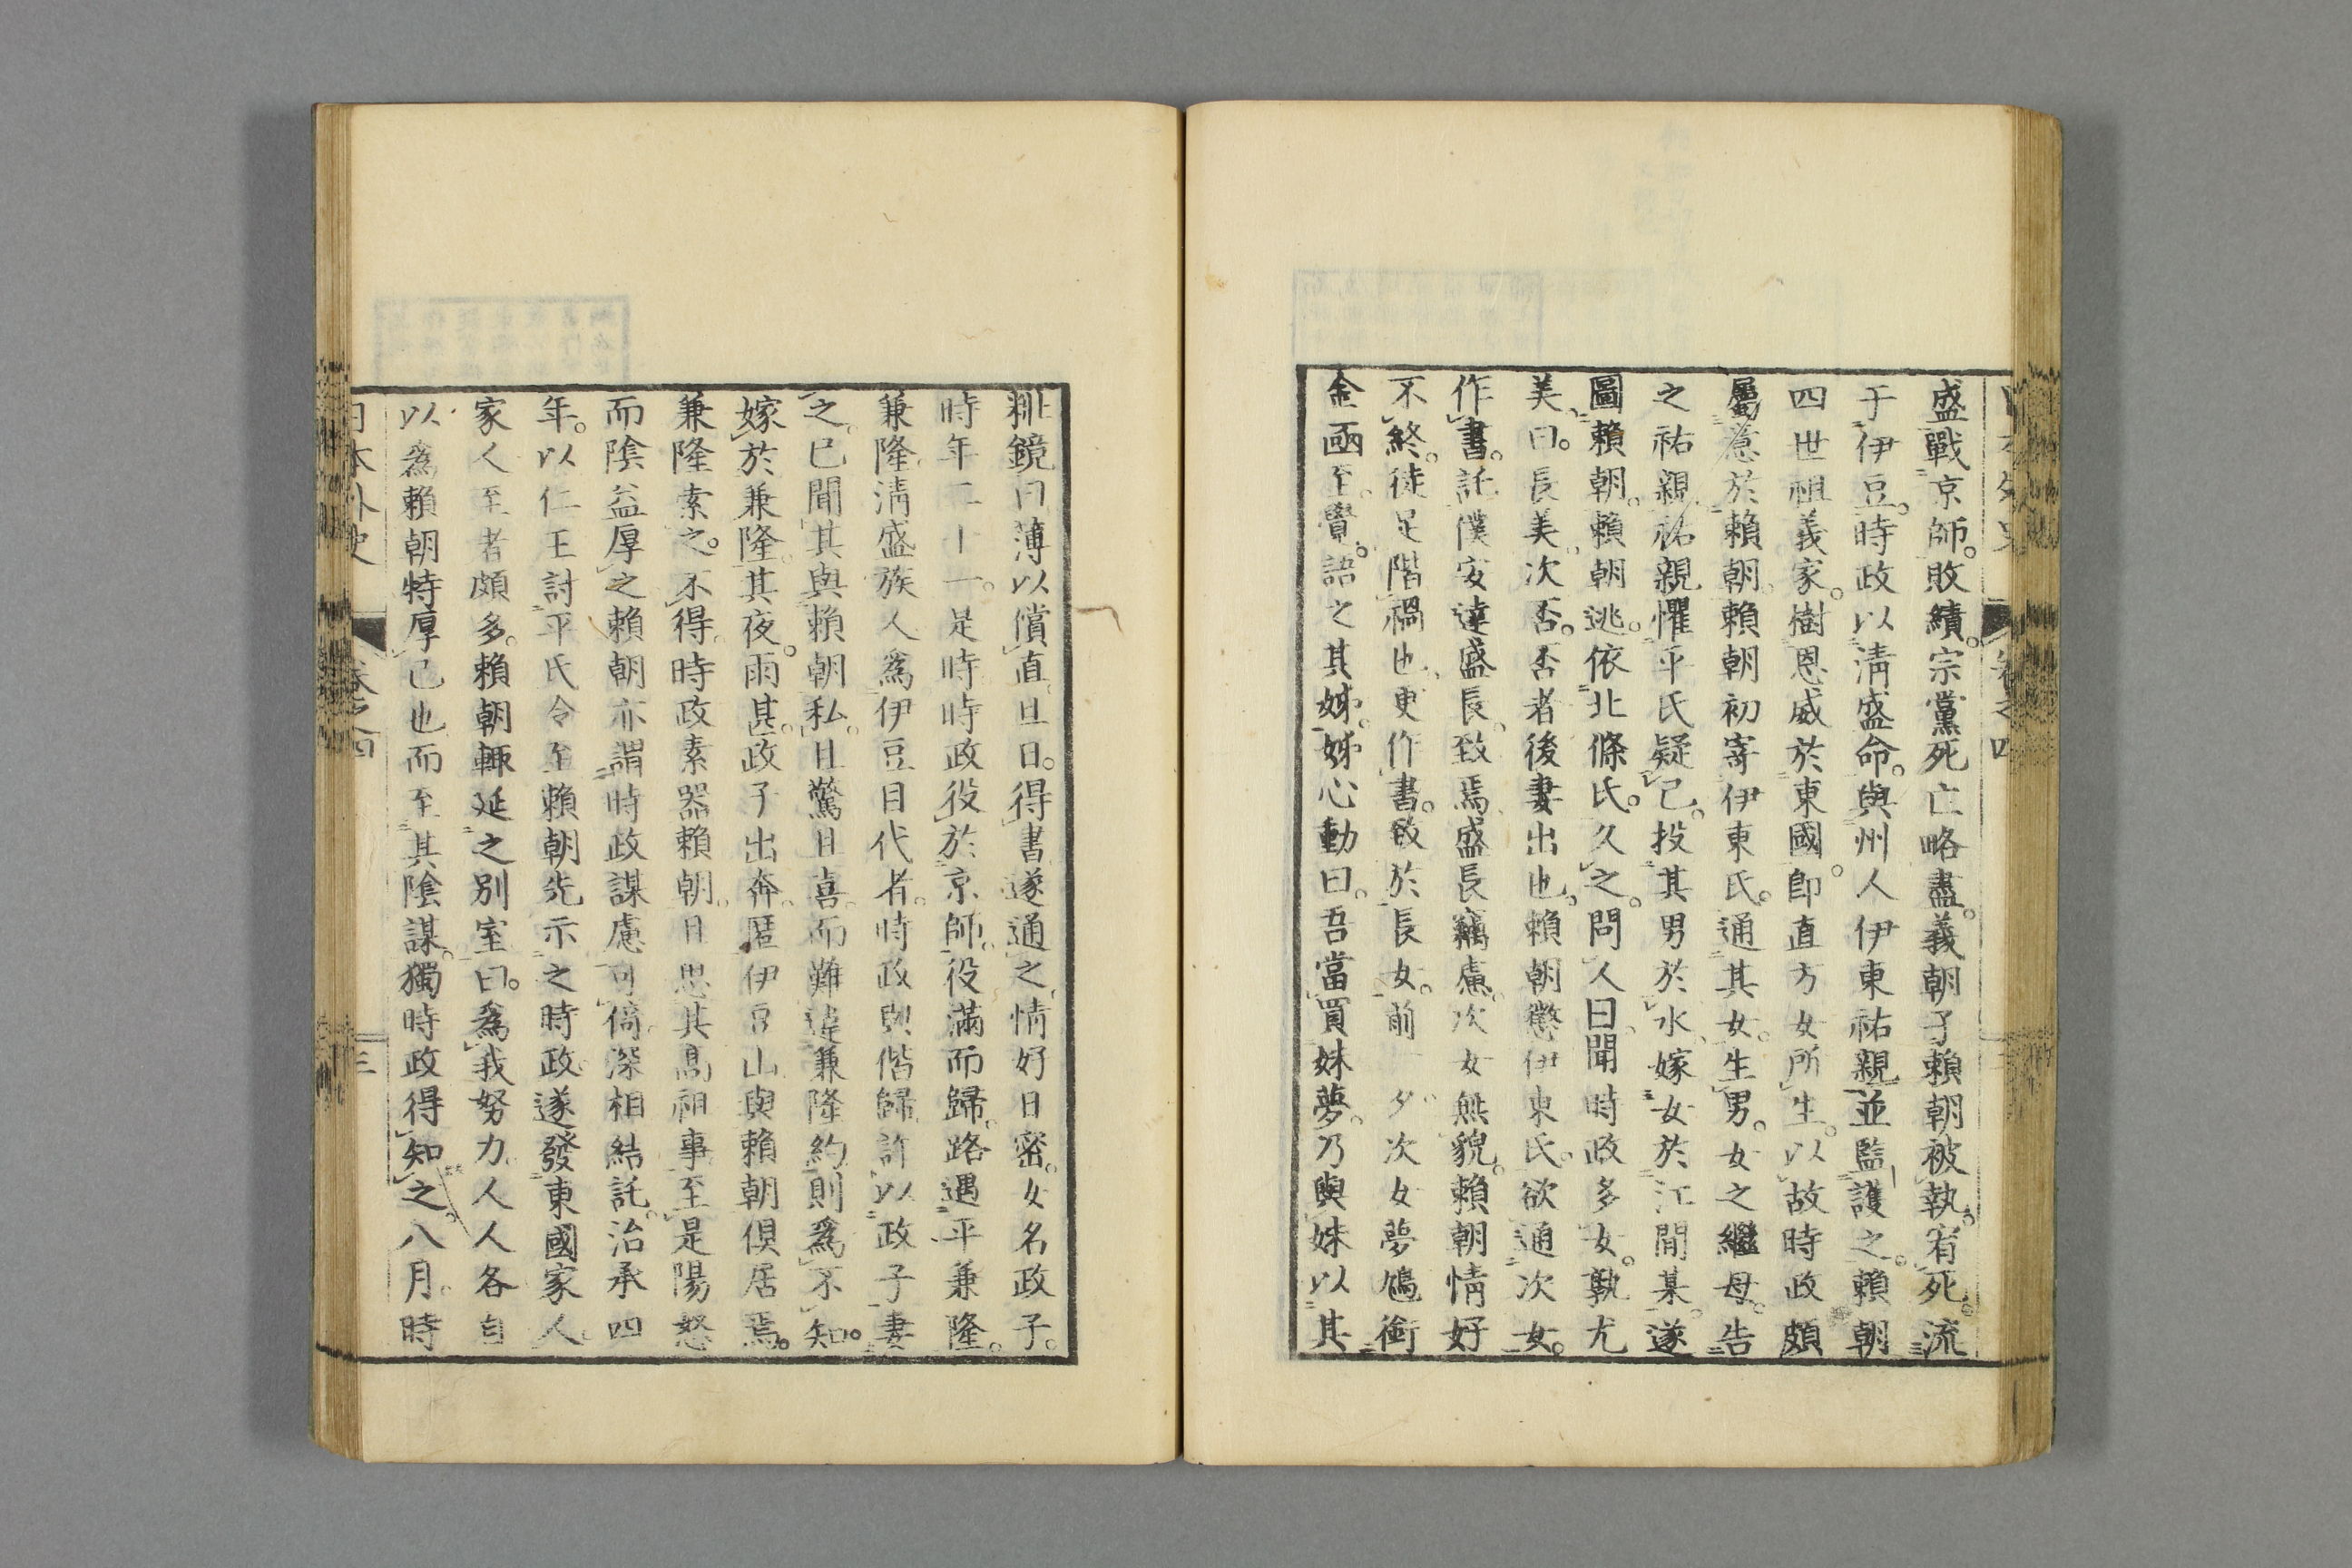 盛戰京師。敗績。宗黨死亡略盡。義朝子賴朝被執。宥死。流
于伊豆。時政以淸盛命。與州人伊東祐親並監護之。賴朝
四世祖義家。樹恩威於東國。卽直方女所生。以故時政頗
屬意於賴朝。賴朝初寄伊東氏。通其女。生男。女之繼母。告
之祐親。祐親懼平氏疑己。投其男於水、嫁女於江間某。遂
圖賴朝。賴朝逃。依北條氏。久之。問人曰。聞時政多女。孰尤
美。曰。長美。次否。否者後妻出也。賴朝懲伊東氏。欲通次女。
作書。託僕安達盛長。致焉。盛長竊慮。次女無貌。賴朝情好
不終。徒足階禍也、更作書。致於長女。前 夕次女夢鳩銜
金凾至。覺。語之其姊。姊心動曰。吾當買妹夢。乃與妹以其
粃鏡曰薄以償直。旦日。得書。遂通之、情好日密。女名政子。
時年二十一。是時時政役於京師。役滿而歸。路遇平兼隆。
兼隆淸盛族人爲伊豆目代者。時政與偕歸。許以政子妻
之。已聞其與賴朝私。且驚且喜。而難違兼隆約。則爲不知。
嫁於兼隆。其夜。雨甚。政子出奔。匿伊豆山。與賴朝俱居焉。
兼隆索之。不得。時政素器賴朝。且思其高祖事。至是陽怒
而陰益厚之。賴朝亦謂時政謀慮可倚。深相結託。治承四
年。以仁王討平氏令至。賴朝先示之時政。遂發東國家人。
家人至者頗多。賴朝輙延之別室曰。爲我努力。人人各自
以爲賴朝特厚己也。而至其陰謀。獨時政得知之。八月。時
日本外史 卷之四 三